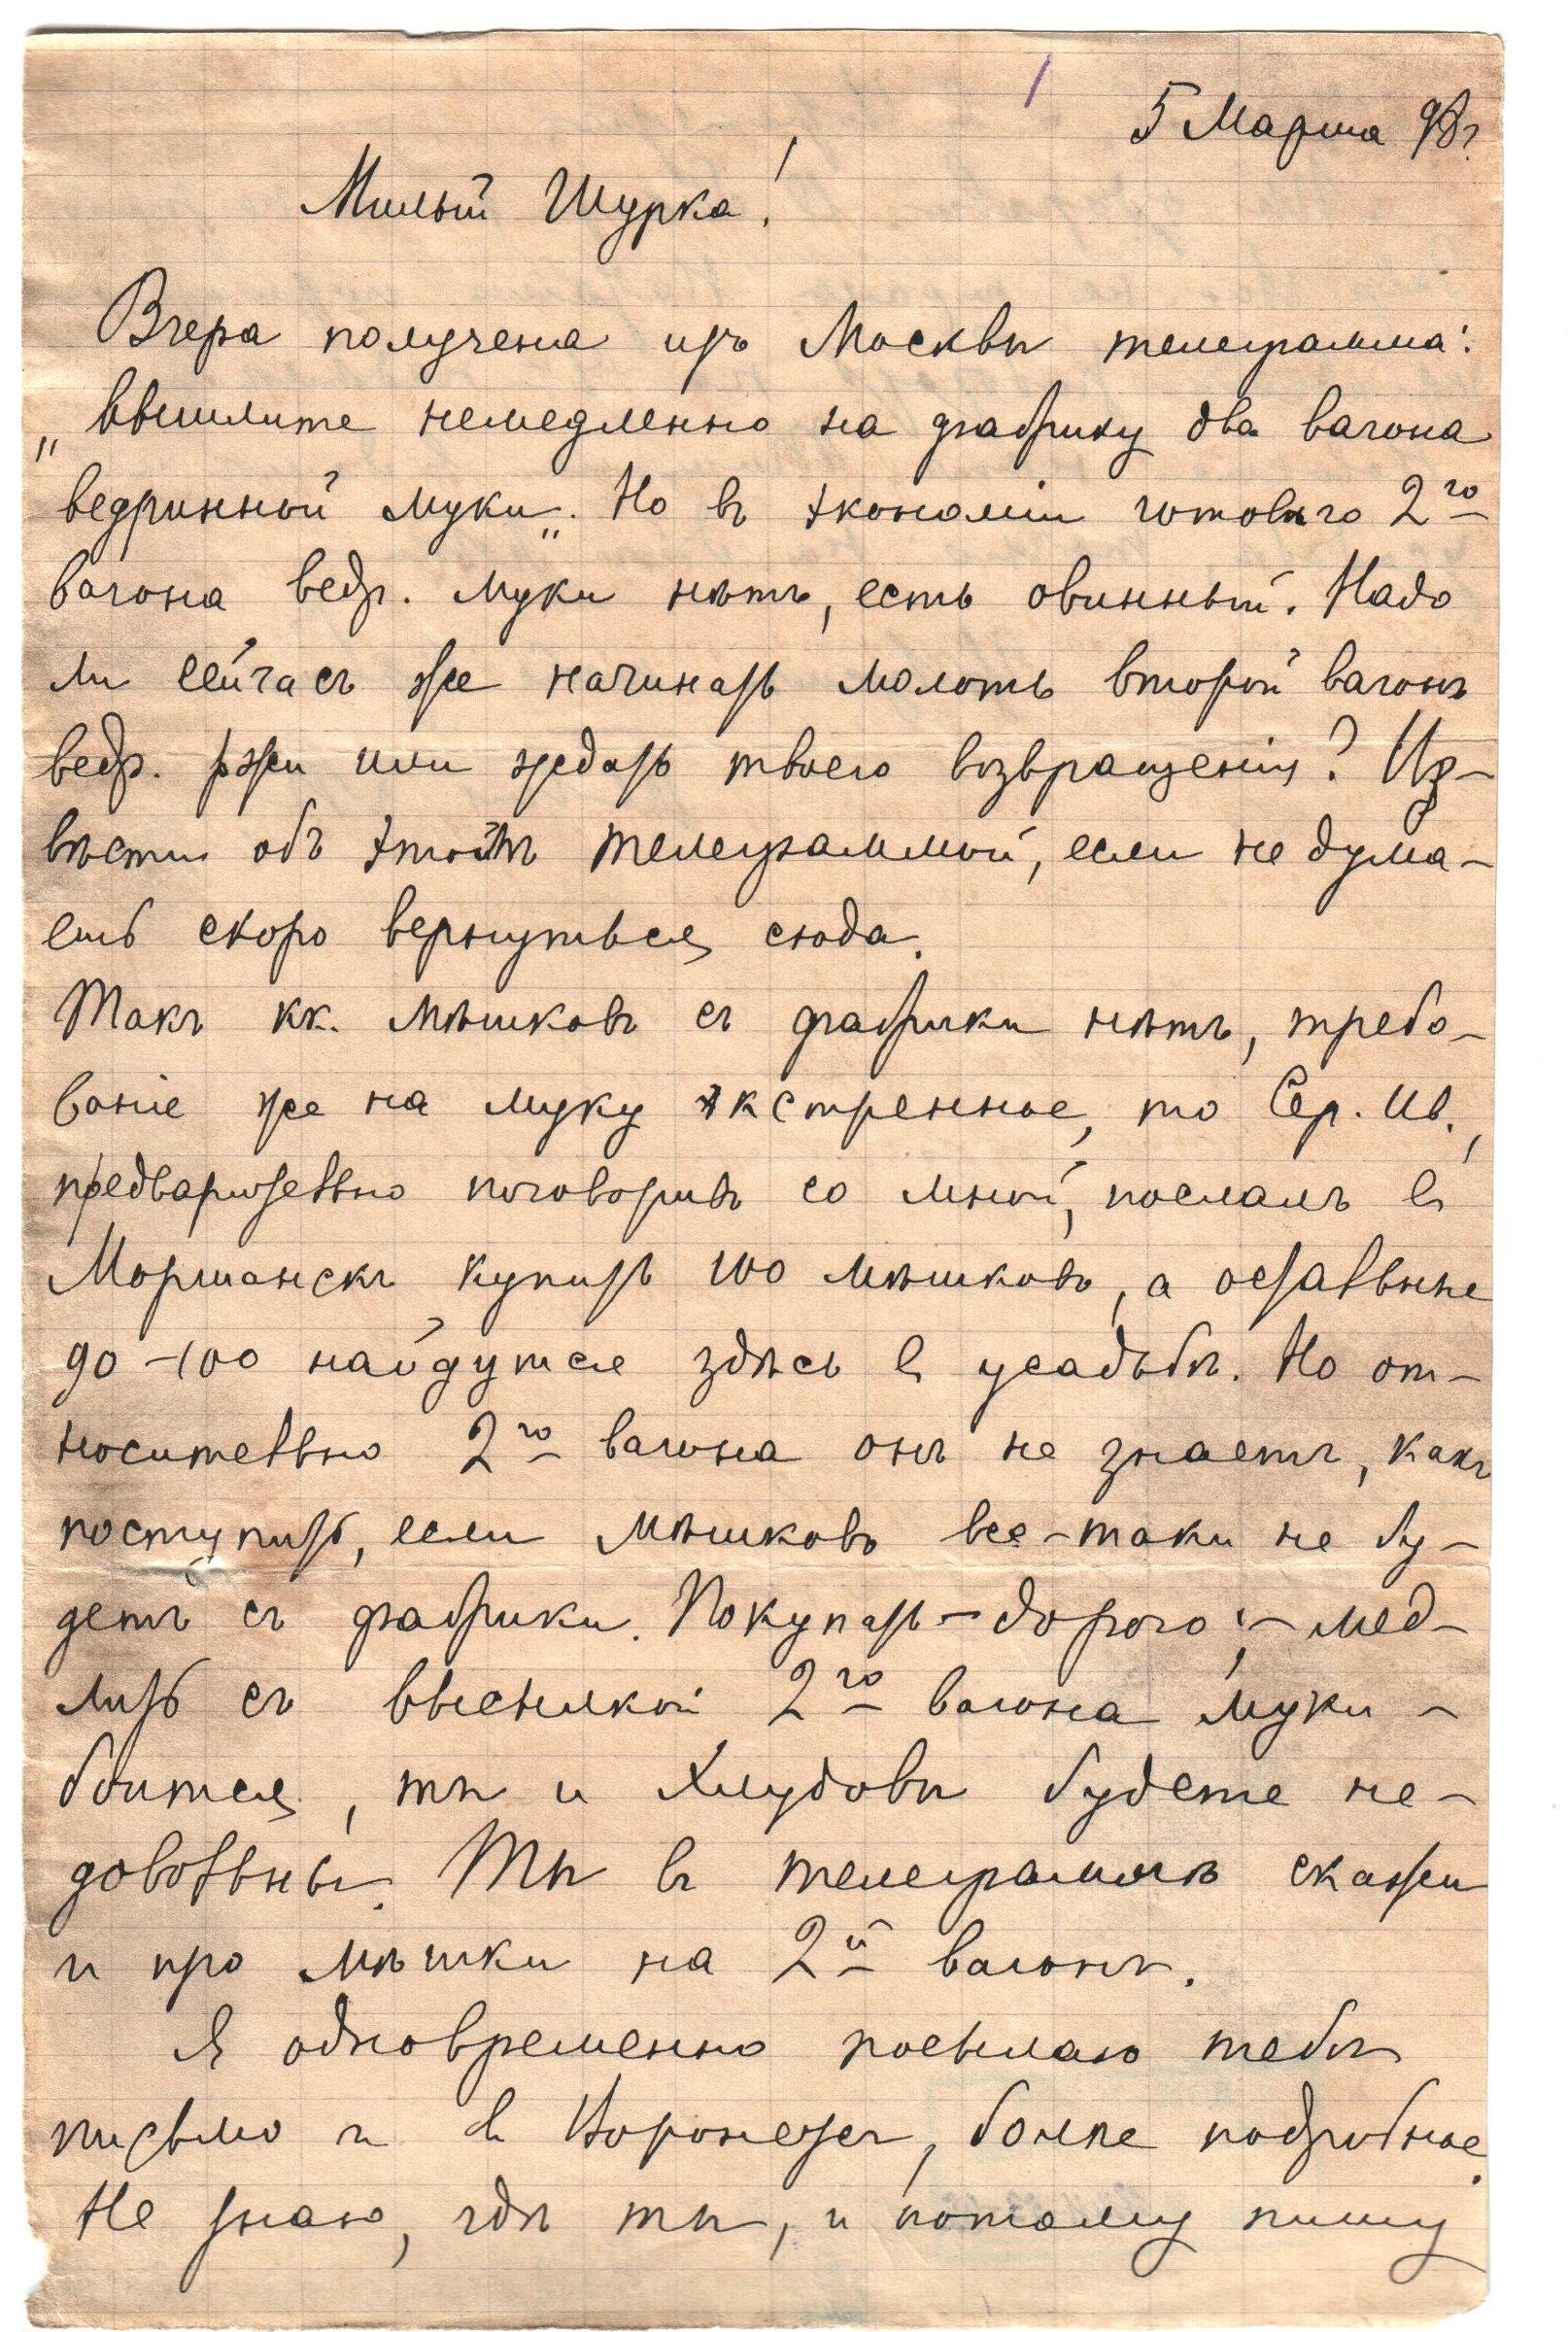 5 Марта 98 г.
Милый Шурка!
Вчера получена изъ Москвы телеграмма:
„Вышлите немедленно на фабрику два вагона
ведринной муки„. Но въ экономіи готоваго 2го
вагона ведр. муки нѣтъ, есть овинный. Надо
ли сейчасъ же начинать молоть второй вагонъ
ведр. ржи или ждать твоего возвращенія? Из-
вѣсти объ этомъ телеграммой, если не дума-
ешь скоро вернуться сюда.
Такъ кк. мѣшковъ съ фабрики нѣтъ, требо-
ваніе же на муку экстренное, то Сер. Ив.,
предварительно поговоривъ со мной, послалъ въ
Моршанскъ купить 100 мѣшковъ, а остальные
90-100 найдутся здѣсь въ усадьбѣ. Но от-
носительно 2го вагона онъ не знаетъ, какъ
поступить, если мѣшковъ все-таки не бу-
детъ съ фабрики. Покупать - дорого; - мед-
лить съ высылкой 2го вагона муки -
боится, ты и Хлудовы будете не-
довольны. Ты въ телеграммѣ скажи
и про мѣшки на 2й вагонъ.
Я одновременно посылаю тебѣ
письмо и въ Воронежъ, болѣе подробное.
Не знаю, гдѣ ты, и потому пишу